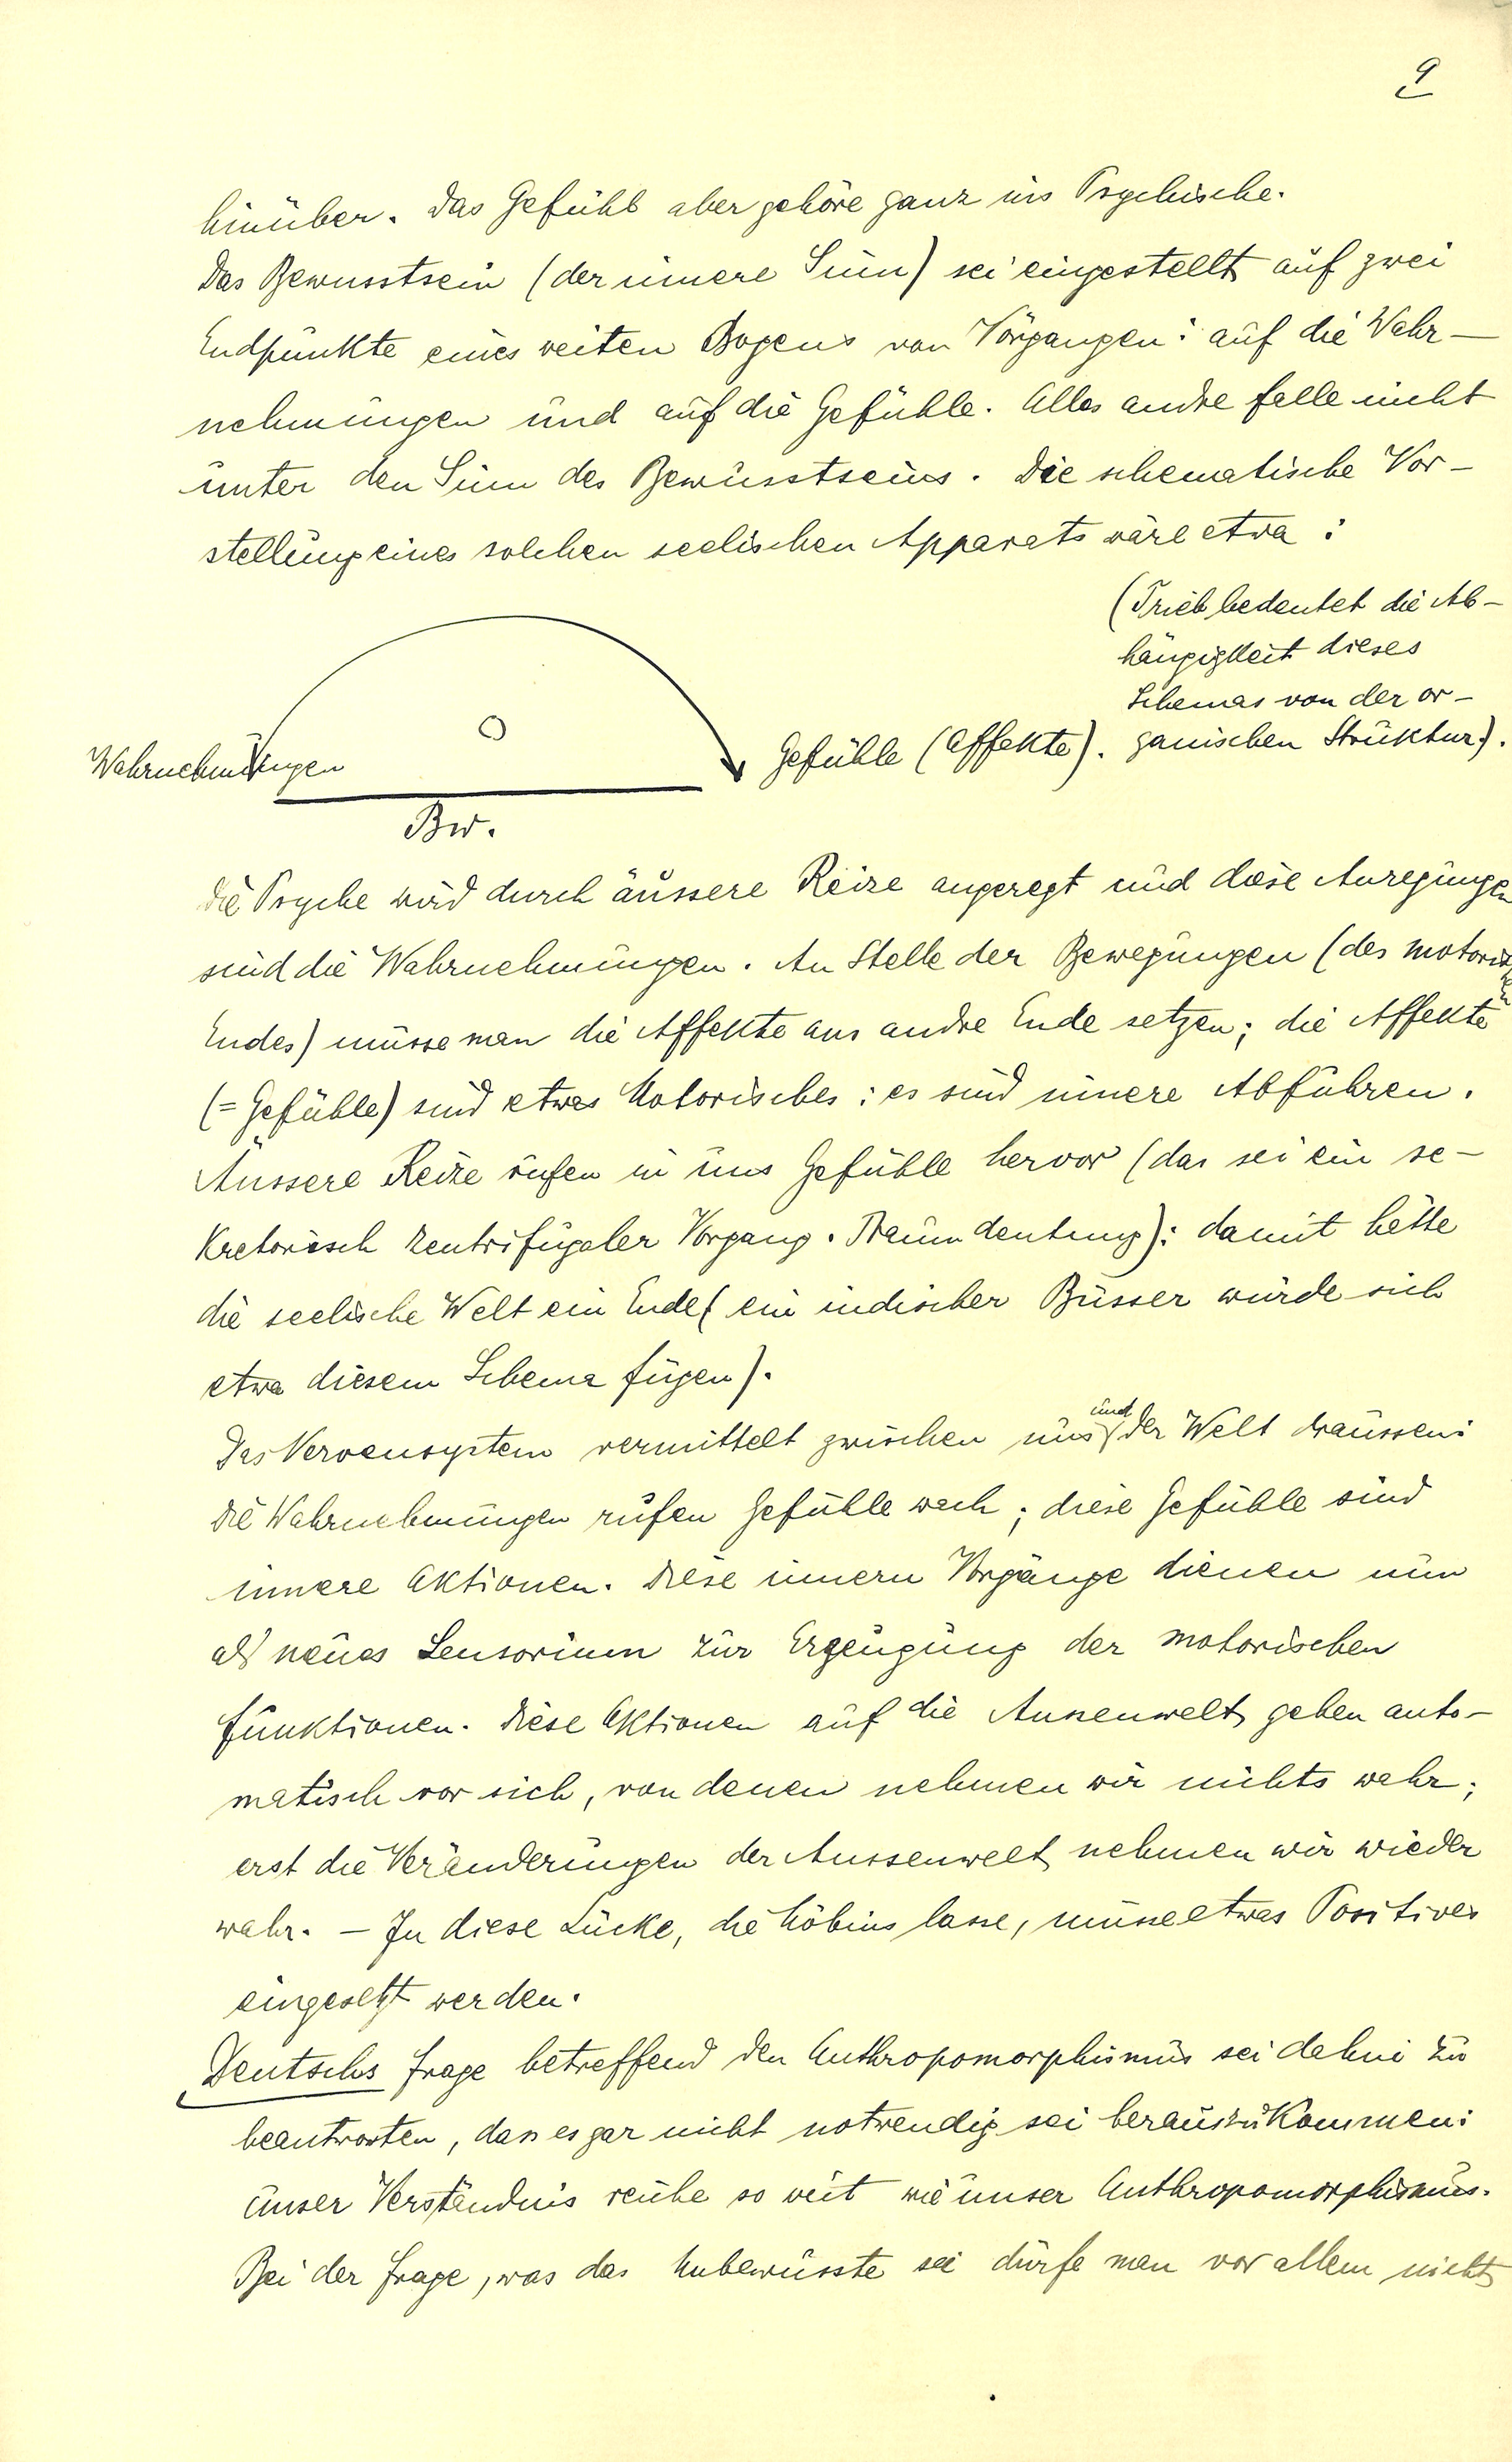 9
hinüber. Das Gefühl aber gehöre ganz ins Psychische.
Das Bewusstsein (der innere Sinn) sei eingestellt auf zwei
Endpunkte eines weiten Bogens von Vorgängen: auf die Wahr-
nehmungen und auf die Gefühle. Alles andre falle nicht
unter den Sinn des Bewusstseins. Die schematische Vor-
stellung eines solchen seelischen Apparats wäre etwa:
(Trieb bedeutet die Ab-
hängigkeit dieses
Schemas von der or-
ganischen Struktur).
Wahrnehmungen
Gefühle (Affekte).
Bw.
Die Psyche wird durch äussere Reize angeregt und diese Anregungen
sind die Wahrnehmungen. An Stelle der Bewegungen (des motorischen
Endes) müsse man die Affekte ans andre Ende setzen; die Affekte
(= Gefühle) sind etwas Motorisches: es sind innere Abfuhren.
Äussere Reize rufen in uns Gefühle hervor (das sei ein se-
kretorisch zentrifugaler Vorgang. Traumdeutung): damit hätte
die seelische Welt ein Ende (ein indischer Büsser würde sich
etwa diesem Schema fügen).
Das Nervensystem vermittelt zwischen uns und der Welt draussen:
die Wahrnehmungen rufen Gefühle wach; diese Gefühle sind
innere Aktionen. Diese innern Vorgänge dienen nun
als neues Sensorium zur Erzeugung der motorischen
Funktionen. Diese Aktionen auf die Aussenwelt gehen auto-
matisch vor sich, von denen nehmen wir nichts wahr;
erst die Veränderungen der Aussenwelt nehmen wir wieder
wahr. — In diese Lücke, die Möbius lasse, müsse etwas Positives
eingesetzt werden.
Deutschs Frage betreffend den Anthropomorphismus sei dahin zu
beantworten, dass es gar nicht notwendig sei herauszukommen:
unser Verständnis reiche so weit wie unser Anthropomorphismus.
Bei der Frage, was das Unbewusste sei dürfe man vor allem nicht